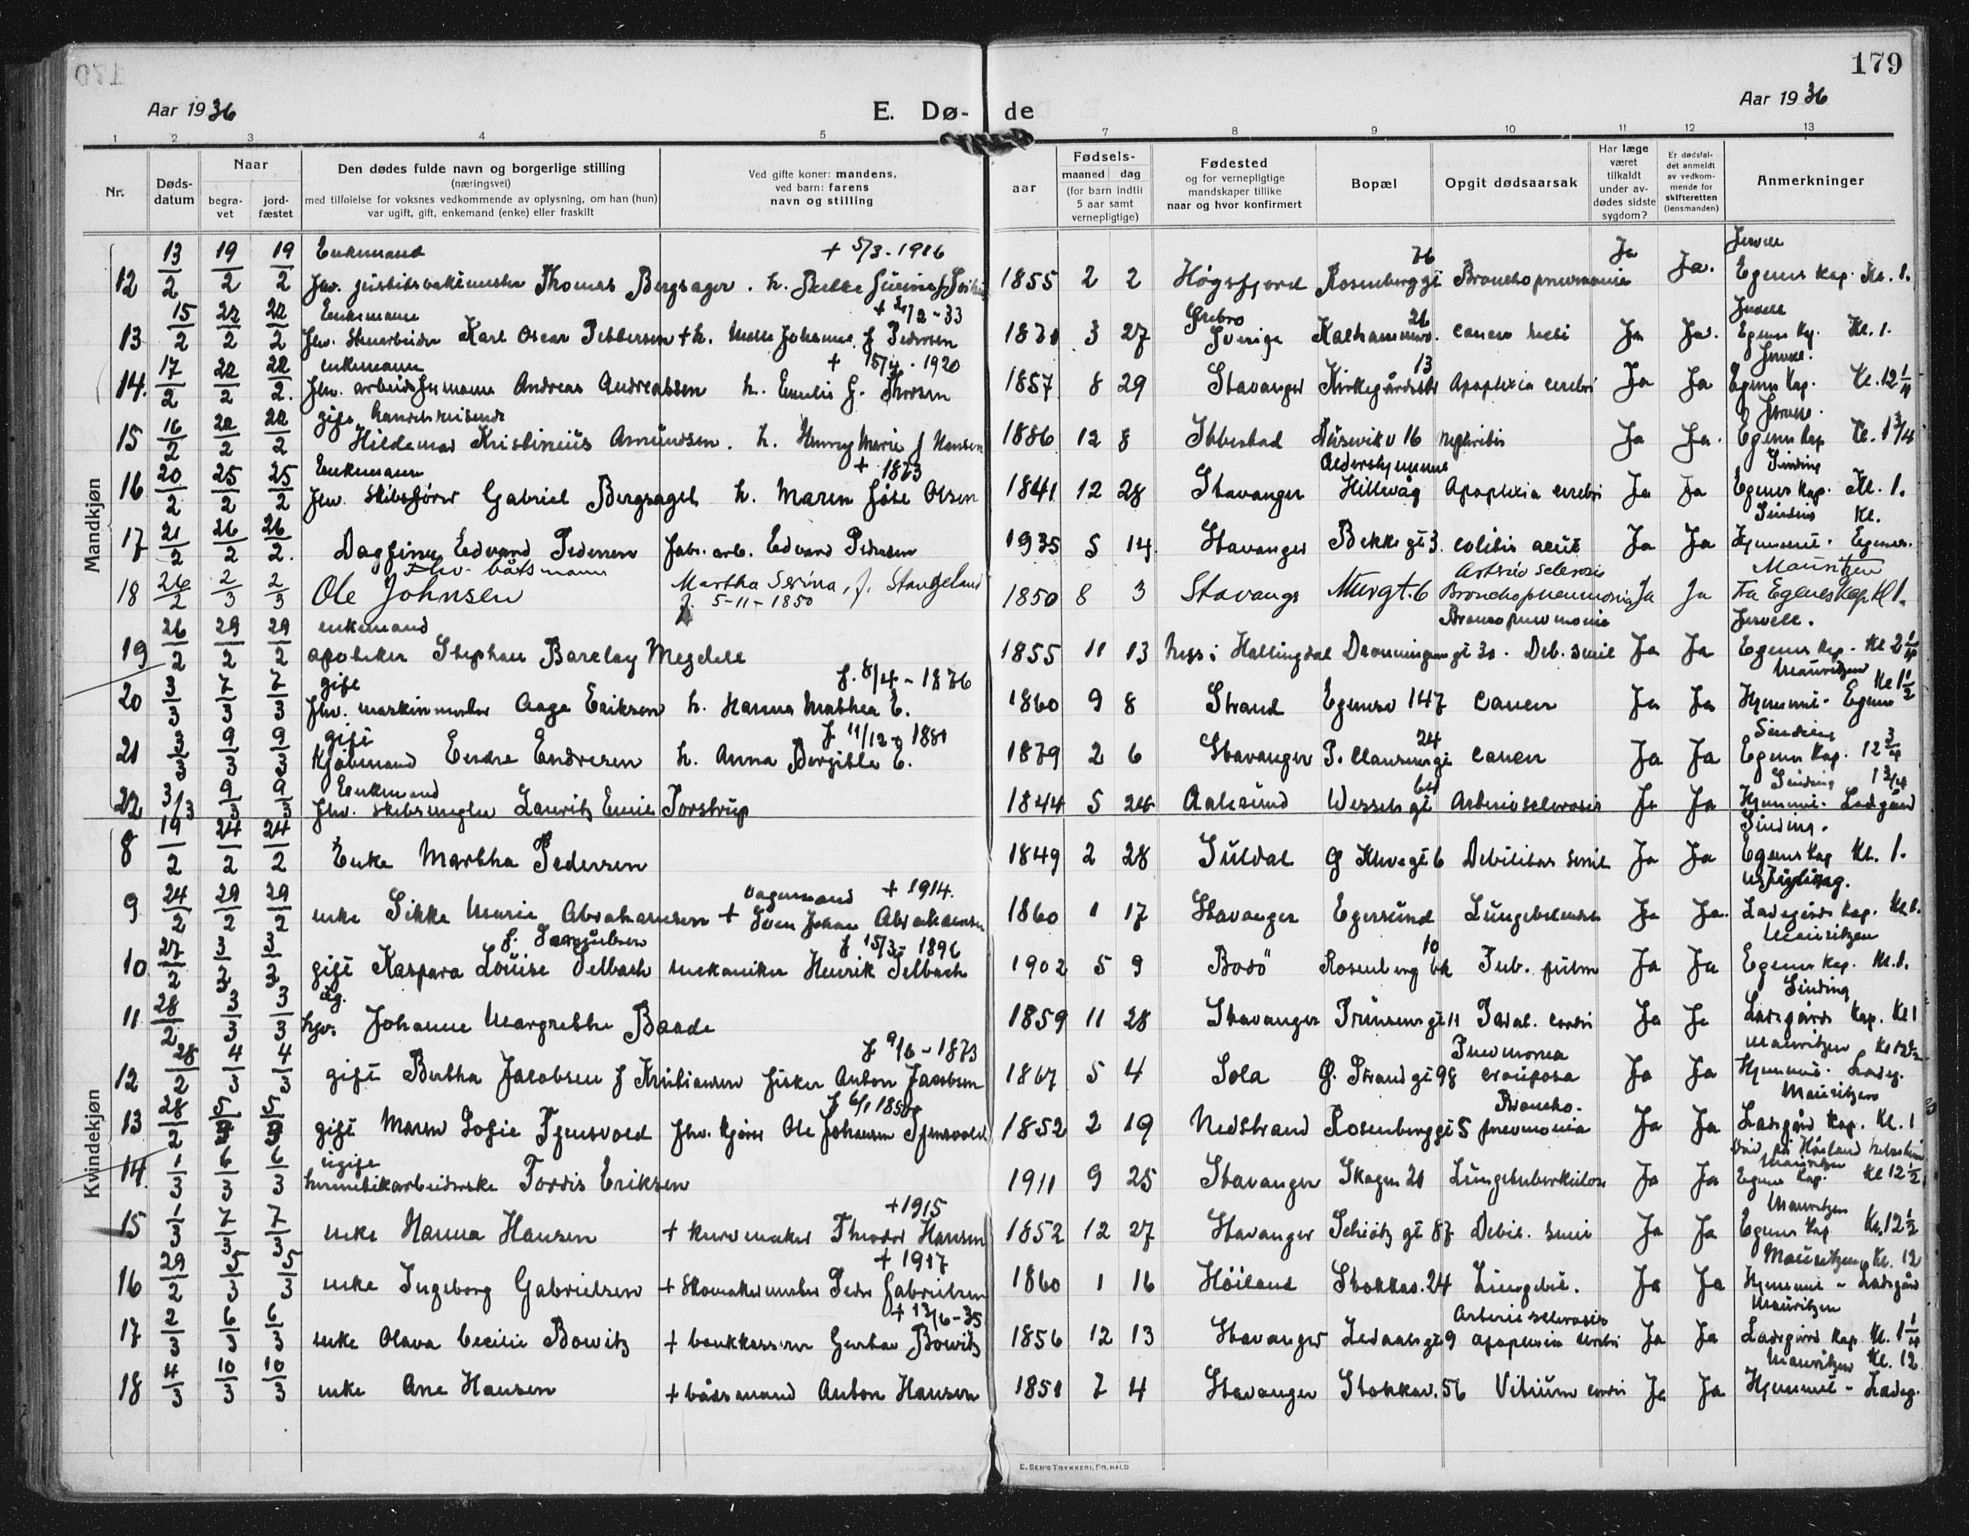 179
Aar 1936 E. Dø- de Aar 1936
1 2 3 4 5 7 8 9 10 11 12 13
Nr. Døds-datum Naar begra-vet jord-fæstet Den dødes fulde navn og borgerlige stilling (næringsvei) med tilføielse for voksnes vedkommende av oplysning, om han (hun) var ugift, gift, enkemand (enke) eller fraskilt Ved gifte koner: mandens, ved barn: farens navn og stilling aar Fødsels- maaned dag (for barn indtil 5 aar samt vernepligtige) Fødested og for vernepligtige mandskaper tillike naar og hvor konfirmert Bopæl Opgit dødsaarsak Har læge været tilkaldt under av-dødes sidste sygdom? Er dødsfal-det anmeldt av vedkom-mende for skifteretten (lensmanden) Anmerkninger
Mandkjøn
12 13/2 19/2 19/2 Enkemand fhv. Thomas Bergsager. h. + 5/3-1916 1855 2 2 Høgsfjord Rosenberggt 76 Bronchopneumonie Ja Ja. Jervell Egenes Kap. Kl. 1.
13 15/2 22/2 22/2 Enkemann fhv. Karl Oscar Pettersen + h. J. Pedersen 3 27 Ørebro Sverige 26 cancer Ja Ja. Jervell Egenes Kp. Kl. 1.
14. 17/2 22/2 22/2. enkemann fhv. Andreas Andreassen h. Emilie G. Thorsen 1857 8 29 Stavanger 13 Apoplexia cerebri Ja Ja Jervell. Egenes Kap. Kl. 12 1/4
15 16/2 22/2 22/2 gift handelsreisende Hildemar Kristinius Amundsen. h. Henny Marie f Hansen 1886 12 8 Ibbestad 16 nephritis Ja Ja. Egenes Kap Kl. 1 3/4
16 20/2 25/2 25/2 Enkemann fhv. skibsfører Gabriel Bergsagel h. Maren Olsen + 1873 1841 12 28 Stavanger Aldershjemmet Hillevåg Apoplexia cerebri Ja Ja Sinding Egenes Kap. Kl. 1.
17 21/2 26/2 26/2. Dagfinn Edvard Pedersen fabr. arb. Edvard Pedersen 1935 5 14. Stavanger Bekkegt 3. colitis acut Ja Ja Sinding Kl. Hjemme - Egenes.
18 26/2 2/3 2/3 Fhv. båtsmann Ole Johnsen Martha Serina, f. Stangeland f. 5-11-1850 1850 8 3 Stavanger Murgt. 6 Arteriosclerosis Bronchopneumonia Ja Ja Mauritzen Fra Egenes Kap Kl 1.
19 26/2 29/2 29/2 enkemand apotheker Stephan Barclay Megdell 1855 11 13 Næs i Hallingdal Dronningensgt 30. Bronchopneumonie Deb. senil Ja Ja Jervell. Egenes Kap. Kl 2 1/4
20 3/3 7/3 7/3 gift fhv. maskinmester Aage Eriksen h. Hanna Mathea E. f. 8/4-1876 1860 9 8 Strand Egenesv 147 Cancer Ja Ja Mauritzen Kl 1 1/2 Hjemme - Egenes
21 9/3 9/3 gift Kjøbmand Endre Endresen h. Anna Bergithe E. 1879 2 6 Stavanger P. Clausensgt 24 cancer Ja Ja Sinding Egenes Kap. 12 3/4
22 3/3 9/3 9/3 Enkemand fhv. skibsmegler Lauritz Emil Torstrup 1844 5 Aalesund Wesselsgt 64 Arteriosclerosis Ja Ja Sinding 1 3/4 Hjemme. Ladegård
Kvindekjøn
8 19/2 24/2 24/2 Enke Martha Pedersen 1849 2 28 Suldal G Klevegt 6 Debilitas senil Ja Ja Sinding. Egenes Kap Kl. 1.
9 24/2 29/2 29/2 enke Sikke Marie Abrahamsen + Sven Johan Abrahamsen + 1914. 1860 1 17 Stavanger Egersund Lungebetendelse Ja Ja. Ladegårds Kap. Kl. 1.
10 27/2 3/3 3/3 gift Kaspara Louise Selbach f. Samuelsen mekaniker Henrik Selbach f 15/3-1896 1902 5 9 Bodö Rosenberg bk 10 Tub. pulm Ja Ja Mauritzen Egenes Kap. Kl. 1.
11 28/2 3/3 3/3 ug. hjv. Johanne Margrethe Baade 1859 11 28 Stavanger 11 Paral. cordis Ja Ja Sinding Ladegårds Kap. Kl 1
12 28/2 4/3 4/3 gift Bertha Jacobsen f Kristiansen fisker Anton Jacobsen f 9/6-1873 1867 5 4 Sola G. Strandgt 98 Pneumonia crouposa Ja Ja Mauritzen Kl 12 1/2 Hjemme. Ladeg.
13 28/2 5/3 5/3 gift Maren Sofie Tjensvold fhv. kjører Ole Johansen Tjensvold 1852 2 19 Nedstrand Rosenberggt 5 Broncho-pneumonia Ja Ja Mauritzen Ladegård Kap. Kl. 1
14. 1/3 6/3 6/3 ugift Tordis Eriksen 1911 9 25 Stavanger Skagen 21 Lungetuberkulose Ja Ja Mauritzen Kl 12 1/2 Egenes Kap.
15 1/3 7/3 7/3 enke Hanna Hansen + kurvmaker Theodor Hansen +1915 1852 12 27 Stavanger Schiøtzgt 87 Debil. senil Ja Ja Mauritzen Egenes Kap Kl. 12 1/2
16 29/2 5/3 5/3 enke Ingeborg Gabrielsen + Skomakermester Peder Gabrielsen + 1917 1860 1 16 Höiland Stokkav. 24 Lungebet. Ja Ja Mauritzen Kl. 12 Hjemme - Ladegård
17 2/3 6/3 6/3 enke Olava Cecilie Bowitz + bankkasserer Gustav Bowitz + 13/6-35 1856 12 13 Stavanger Ledaalsgt 9 Arteriosclerosis apoplexia cerebri Ja Ja Mauritzen Ladegård Kap. Kl. 1 1/4
18 4/3 10/3 10/3 enke Ane Hansen + båtsmand Anton Hansen 1851 7 4 Stavanger Stokkav. 56 Vitium cordis Ja Ja Mauritzen Kl. 12 Hjemme - Ladeg.
E. SEM'S TRYKKERI, FR.HALD